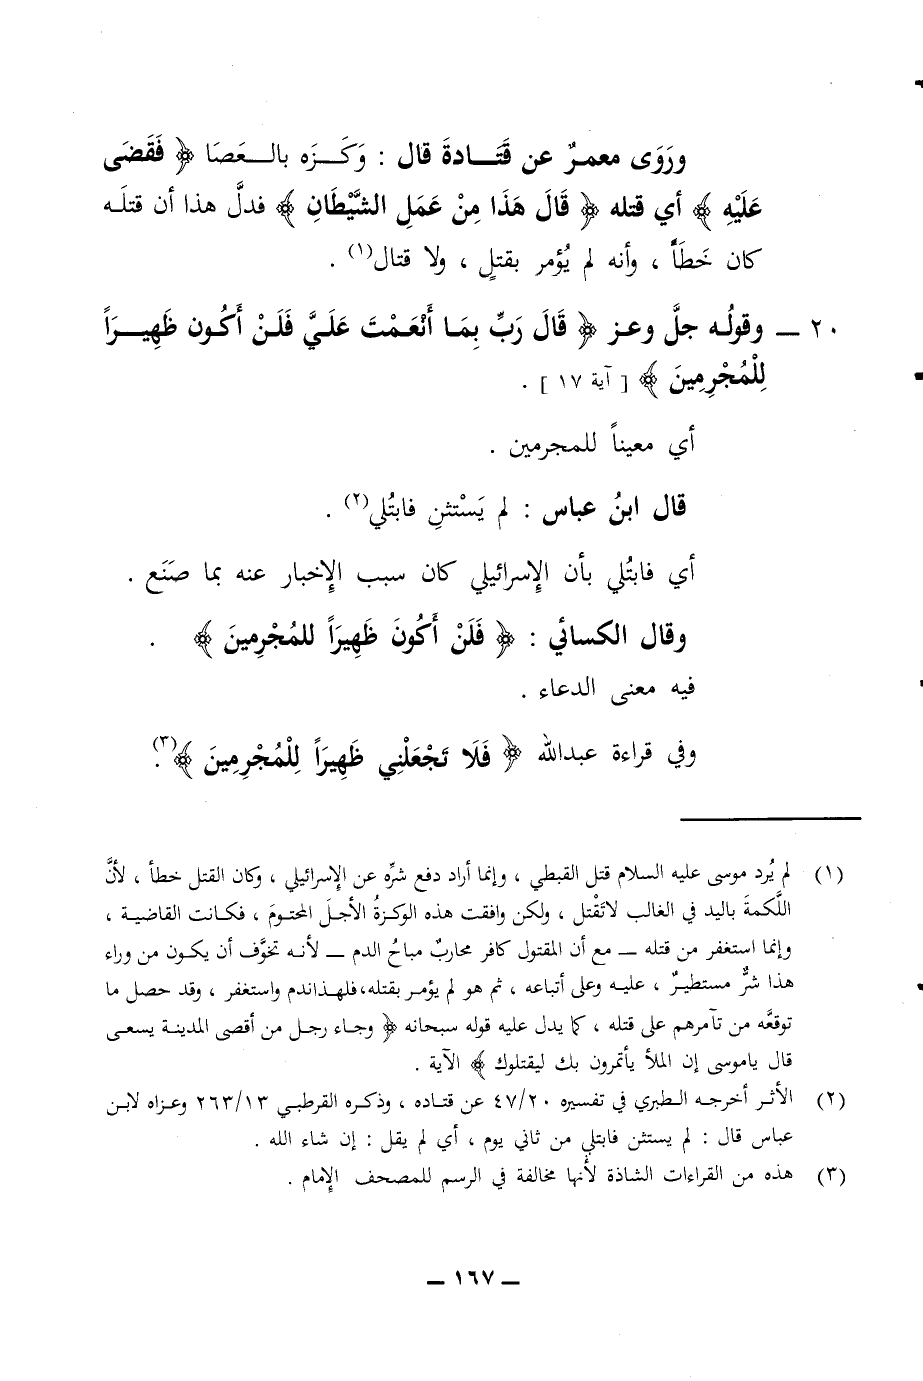 ورَوَى معمرٌ عن قَتَادةَ قال : وَكَزَه بالعَصَا ﴿ فَقَضَى
عَلَيْهِ ﴾ أي قتله ﴿ قَالَ هَذَا مِنْ عَمَلِ الشَّيْطَانِ ﴾ فدلَّ هذا أن قتلَه
كان خَطَأً ، وأنه لم يُؤمر بقتلٍ ، ولا قتال(١) .
٢٠ ــ وقولُه جلَّ وعز ﴿ قَالَ رَبِّ بِمَا أَنْعَمْتَ عَلَيَّ فَلَنْ أَكُون ظَهِيرَاً
لِلْمُجْرِمِينَ ﴾ [ آية ١٧ ] .
أي معيناً للمجرمين .
قال ابنُ عباس : لم يَسْتثنِ فابتُلي(٢) .
أي فابتُلي بأن الإسرائيلي كان سبب الإخبار عنه بما صَنَع .
وقال الكسائي : ﴿ فَلَنْ أَكُونَ ظَهِيرَاً للمُجْرِمينَ ﴾ .
فيه معنى الدعاء .
وفي قراءة عبدالله ﴿ فَلَا تَجْعَلْنِي ظَهِيرَاً لِلْمُجْرِمِينَ ﴾(٣).
(١) لم يُرد موسى عليه السلام قتل القبطي ، وإنما أراد دفع شرِّه عن الإسرائيلي ، وكان القتل خطأ ، لأنَّ
اللَّكمةَ باليد في الغالب لاتَقْتل ، ولكن وافقت هذه الوكزةُ الأجلَ المحتومَ ، فكانت القاضية ،
وإنما استغفر من قتله ــ مع أن المقتول كافر محاربٌ مباحُ الدم ــ لأنه تخوَّف أن يكون من وراء
هذا شرٌّ مستطيرٌ ، عليه وعلى أتباعه ، ثم هو لم يؤمر بقتله،فلهذاندم واستغفر ، وقد حصل ما
توقعَّه من تآمرهم على قتله ، كما يدل عليه قوله سبحانه ﴿ وجاء رجل من أقصى المدينة يسعى
قال ياموسى إن الملأ يأتمرون بك ليقتلوك ﴾ الآية .
(٢) الأثر أخرجه الطبري في تفسيره ٤٧/٢٠ عن قتاده ، وذكره القرطبي ٢٦٣/١٣ وعزاه لابن
عباس قال : لم يستثن فابتلي من ثاني يوم ، أي لم يقل : إن شاء الله .
(٣) هذه من القراءات الشاذة لأنها مخالفة في الرسم للمصحف الإمام .
ــ ١٦٧ ــ